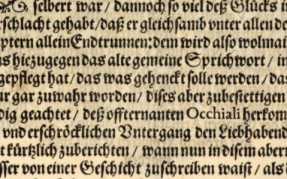 G. selbert war / dannoch so viel deß Glücks i
schlacht gehabt / daß er gleichsamb vnter allen de
ptern allein Endtrunnen: dem wird also wolmai
us hiezugegen das alte gemeine Sprichwort / in
gepflegt hat / das was gehenckt solle werden / da
ur gar zuwahr worden / dises aber zubestettigen
dig geachtet / deß offternanten Occhiali herkom
vnd erschröcklichen Vntergang den Liebhabend
t kürtzlich zuberichten / wann nun in disem aberm
sser von einer Geschicht zuschreiben waist / als d